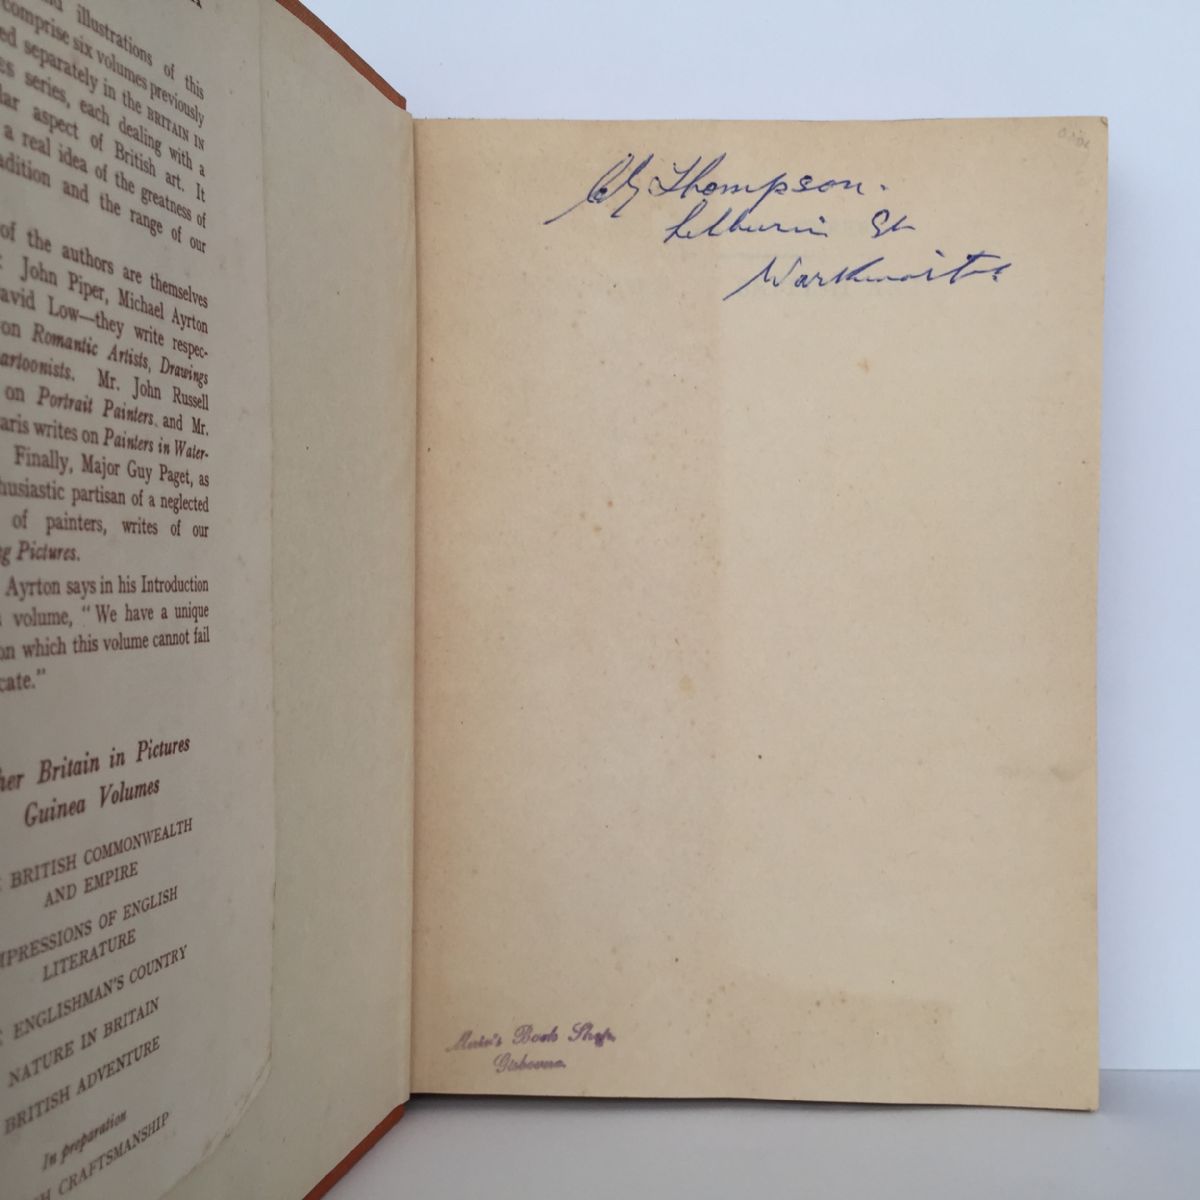 nd illustrations of this
comprise six volumes previously
ed separately in the BRITAIN IN
ES series, each dealing with a
lar aspect of British art. It
a real idea of the greatness of
adition and the range of our
of the authors are themselves
: John Piper, Michael Ayrton
avid Low—they write respec-
on Romantic Artists, Drawings
artoonists. Mr. John Russell
on Portrait Painters, and Mr.
aris writes on Painters in Water-
Finally, Major Guy Paget, as
husiastic partisan of a neglected
of painters, writes of our
ng Pictures.
Ayrton says in his Introduction
volume, "We have a unique
on which this volume cannot fail
cate."
her Britain in Pictures
Guinea Volumes
BRITISH COMMONWEALTH
AND EMPIRE
MPRESSIONS OF ENGLISH
LITERATURE
ENGLISHMAN'S COUNTRY
NATURE IN BRITAIN
BRITISH ADVENTURE
In preparation
SH CRAFTSMANSHIP
Thompson.
St
Warkworth
Muir's Book Shop,
Gisborne.